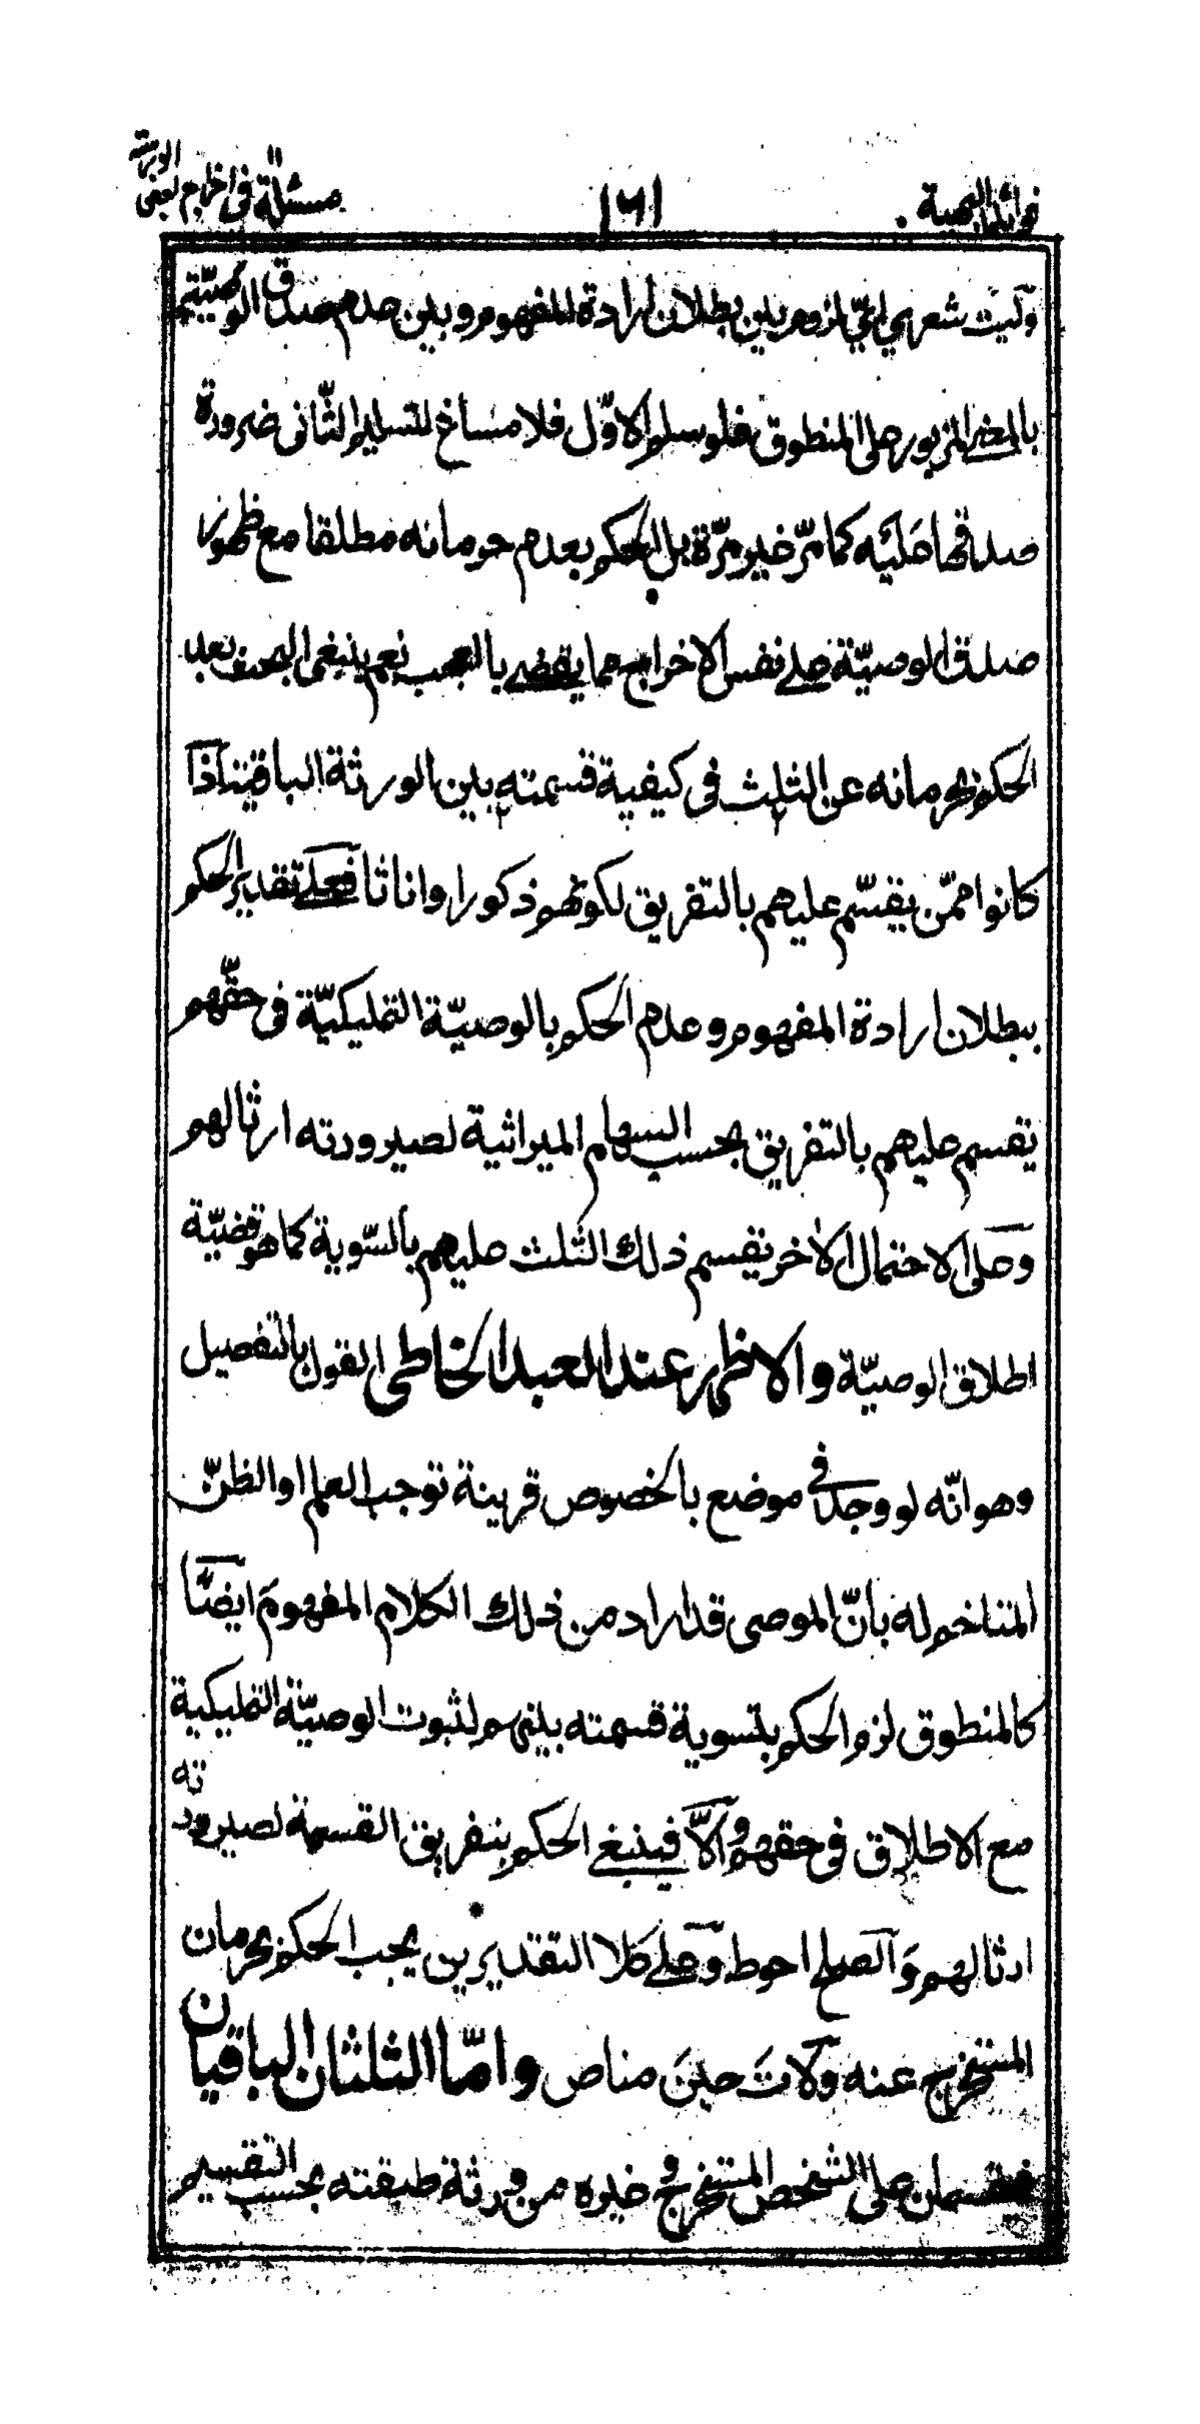 فوائد البهية
١٦١
مسئلة فى اخراج بعض الورثة
وليت شعري اىّ لزوم بين بطلان ارادة المفهوم وبين عدم صدق الوصيّة
بالمعنى المزبور على المنطوق فلو سلم الاوّل فلا مساغ لتسليم الثّانى ضرورة
صدقها عليه كما مرّ غير مرّة بل الحكم بعدم حرمانه مطلقا مع ظهور
صدق الوصيّة على نفس الاخراج مما يقضى بالعجب نعم ينبغى البحث بعد
الحكم بحرمانه عن الثلث فى كيفية قسمته بين الورثة الباقين اذا
كانوا ممّن يقسّم عليهم بالتفريق لكونهم ذكورا واناثا فعلى تقدير الحكم
ببطلان ارادة المفهوم وعدم الحكم بالوصيّة التمليكيّة فى حقّهم
يقسم عليهم بالتفريق بحسب السهام الميراثية لصيرورته ارثا لهم
وعلى الاحتمال الاخر يقسم ذلك الثلث عليهم بالسّوية كما هو قضيّة
اطلاق الوصيّة والاظهر عند العبد الخاطى القول بالتفصيل
وهو انّه لو وجد فى موضع بالخصوص قرينة توجب العلم او الظنّ
المتاخم له بانّ الموصى قد اراد من ذلك الكلام المفهوم ايضًا
كالمنطوق لزم الحكم بتسوية قسمته بينهم لثبوت الوصيّة التمليكية
مع الاطلاق فى حقهم والّا فينبغى الحكم بتفريق القسمة لصيرورته
ارثا لهم والصلح احوط وعلى كلا التقديرين يجب الحكم بحرمان
المستخرج عنه ولات حين مناص وامّا الثلثان الباقيان
فيقسمان على الشخص المستخرج وغيره من ورثة طبقته بحسب التقسيم